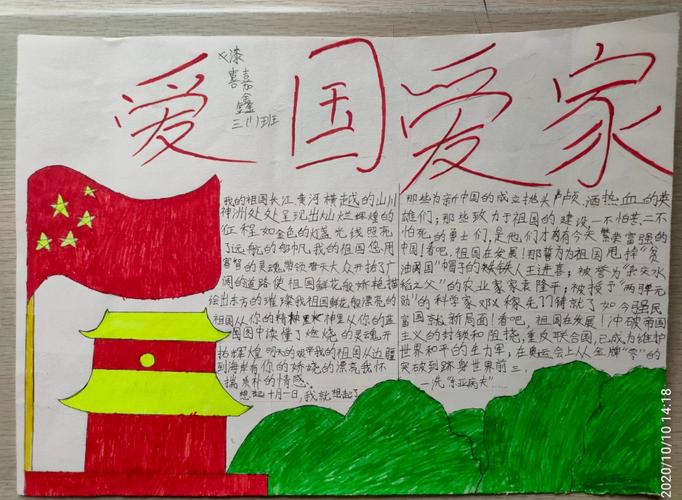 爱国爱家
漆
嘉
鑫
三(1)班
我的祖国长江、黄河横越的山川
神洲处处呈现出灿烂辉煌的
征程如金色的灯蓝光线照亮
了远航的帆我的祖国您用
富智的灵魂带领普天大众开拓了广
阔的道路使祖国鲜花般娇艳描
绘出东方的璀璨我祖国鲜花般漂亮的
祖国从你的精神里从你的蓝
图中读懂了燃烧的灵魂开
拓辉煌明天的艰辛我的祖国从边疆
到海岸有你的娇娆的漂亮我怀
揣质朴的情感
想起十月一日,我就想起了
那些为新中国的成立抛头颅、洒热血的英
雄们;那些致力于祖国的建设,一不怕苦、二不
怕死的勇士们,是他们才有有今天繁荣富强的
中国!看吧,祖国在发展!那誓为为祖国甩掉“贫
油国”帽子的铁人王进喜;被誉为“杂交水
稻之父”的农业家家袁隆平;被授予“两弹元
勋”的科学家邓稼先……铸就了如今强民
富国就新局面!看吧,祖国在发展!冲破帝国
主义的封锁和阻挠,重反联合国,已成为维护
世界和平的主力军;在奥运会上从金牌“零”的
突破到跻身世界前三,
一洗“东亚病夫”
2020/10/10 14:18